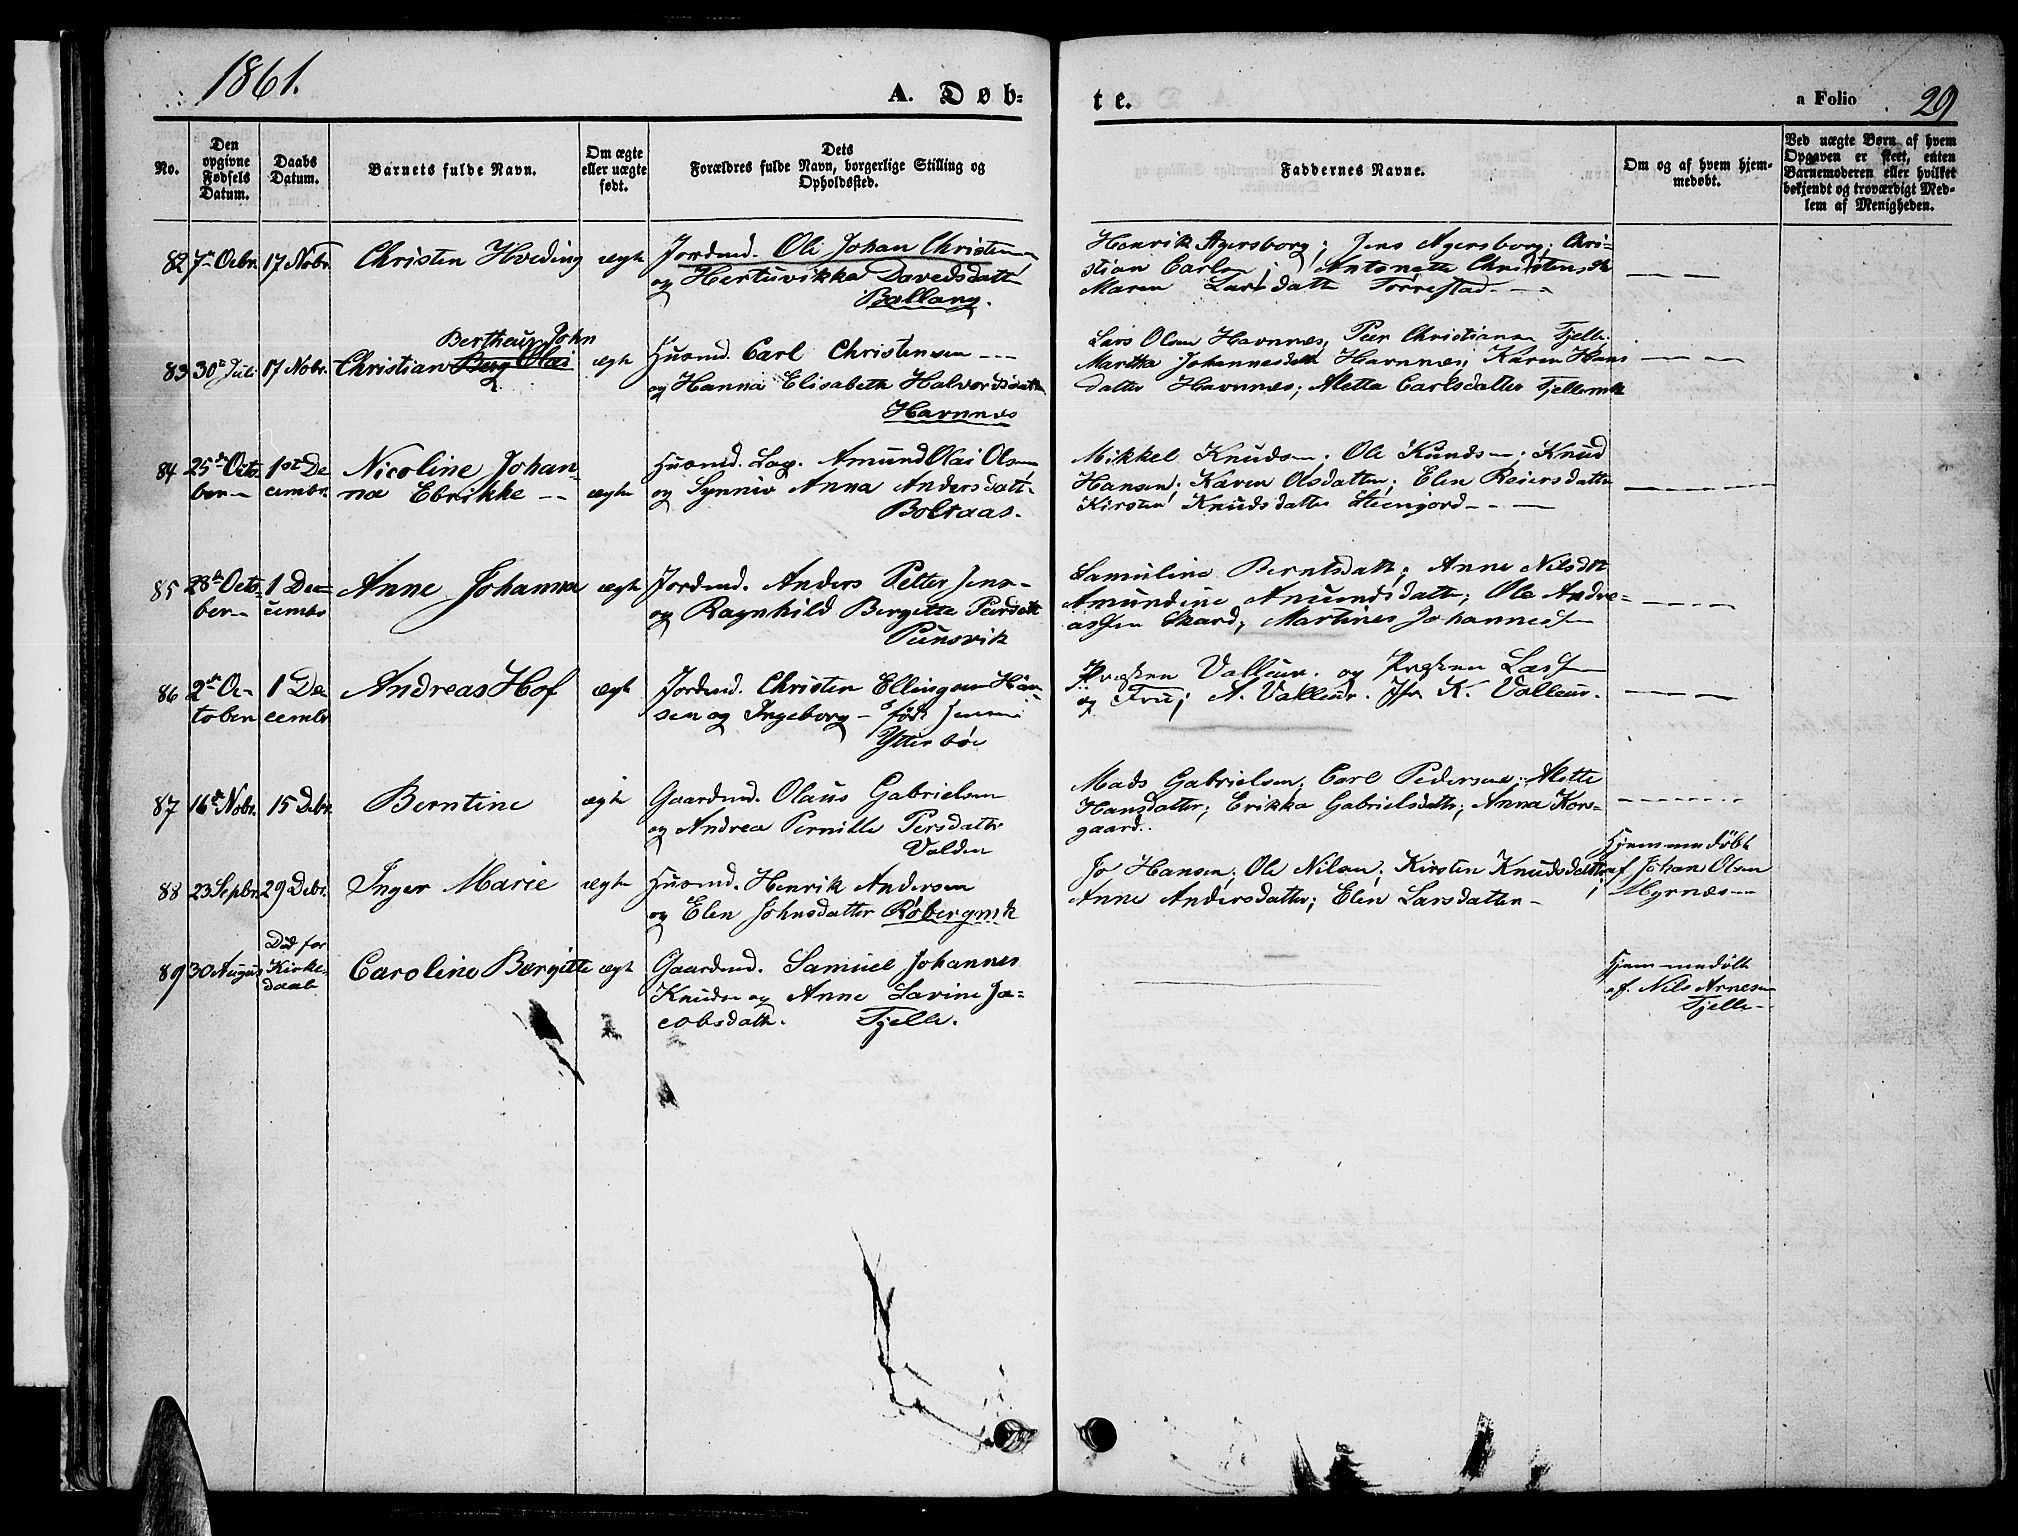 1861.
A. Døb-
te.
a Folio 29
No.
Den opgivne Fødsels Datum.
Daabs Datum.
Barnets fulde Navn.
Om ægte eller uægte født.
Dets Forældres fulde Navn, borgerlige Stilling og Opholdssted.
Faddernes Navne.
Om og af hvem hjemmedøbt.
Ved uægte Børn af hvem Opgaven er skeet, enten Barnemoderen eller hvilket bekjendt og troværdigt Medlem af Menigheden.
82 7de Ocbr. 17 Nobr. Christen Hveding ægte Jordmd. Ole Johan Christensen
og Hertuvikka Davedsdatt
Ballang.
Henrik Agersborg; Jens Agersborg; Chri-
stian Carls ; Antonette Christensdtr
Maren Larsdatt Torrestad
83 30te Juli 17 Nobr. Christian Berg Olai ægte
Bertheus John
Husmd. Carl Christensen
og Hanna Elisabeth Halvorsdatt
Havnnæs
Lars Olsen Havnnæs, Peer Christians Fjelle.
Martha Johannesdatt Havnnæs; Karen Hans
datter Havnnæs; Aletta Carlsdatter Fjellemk
84 25de Octo-
ber 1ste De-
cembr. Nicoline Johan-
na Ebrikke ægte
Husmd. Lap. Amund Olai Olsen
og Synniv Anna Andersdatt.
Boltaas.
Mikkel Knudsen. Ole Knudsen. Knud
Hansen. Karen Olsdatter; Elen Reiersdatter
Kirsten Knudsdatter Steinjord
85 28de Octo-
ber 1 De-
cembr Anne Johanna ægte Jordmd. Anders Petter Jens-
og Ragnhild Bergitta Peersdatt
Punsvik
Samuline Berntsdatt; Anne Nilsdtt
Amundine Amundsdatt; Ole Andre-
assen Skard; Martines Johannes
86 2de Oc-
tober 1 De-
cembr Andreas Hof ægte Jordmd. Christen Ellingsen Han-
sen og Ingeborg født Jensen
Ytterbøe
Valleur. og Lassen
og Frue; A. Valleur. Jfr K. Valleur.
87 16de Nobr. 15 Debr. Berntine ægte Gaardmd. Olaus Gabrielsen
og Andrea Pernille Persdatter
Volden
Mads Gabrielsen; Carl Pedersen; Alette
Hansdatter; Erikka Gabrielsdatter; Anna Kors-
gaard.
88 23 Sepbr. 29 Debr. Inger Marie ægte Husmd. Henrik Andersen
og Elen Johnsdatter Røbergmk
Jo Hansen; Ole Nilsen; Kirsten Knudsdatter;
Anne Andersdatter; Elen Larsdatter
Hjemmedøbt
af Johan Olsen
Myrnæs
89 30 August Død før
Kirke-
daab Caroline Bergitte ægte Gaardmd. Samuel Johannes
Knuds og Anne Lavine Ja-
cobsdatt. Fjelle.
Hjemmedøbt
af Nils Arnesen
Fjelle